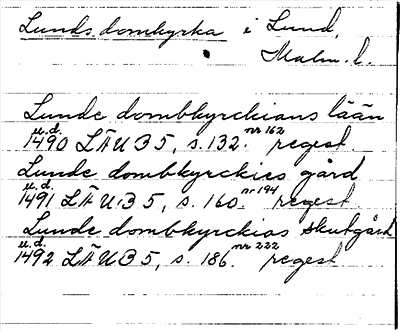 Lunds domkyrka i Lund,
Malm. l.
Lunde dombkyrckians lään
u.d. 1490 LÄUB 5, s. 132. nr 162 regest.
Lunde dombkyrckies gård
u.d. 1491 LÄUB 5, s. 160. nr 194 regest
Lunde dombkyrckias skutgård
u.d. 1492 LÄUB 5, s. 186. nr 222 regest